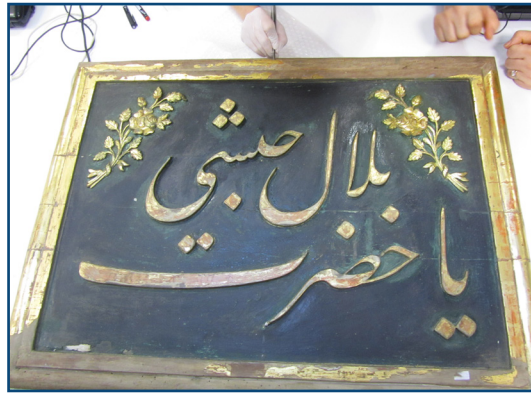 يا حضرت
بلال حبشي